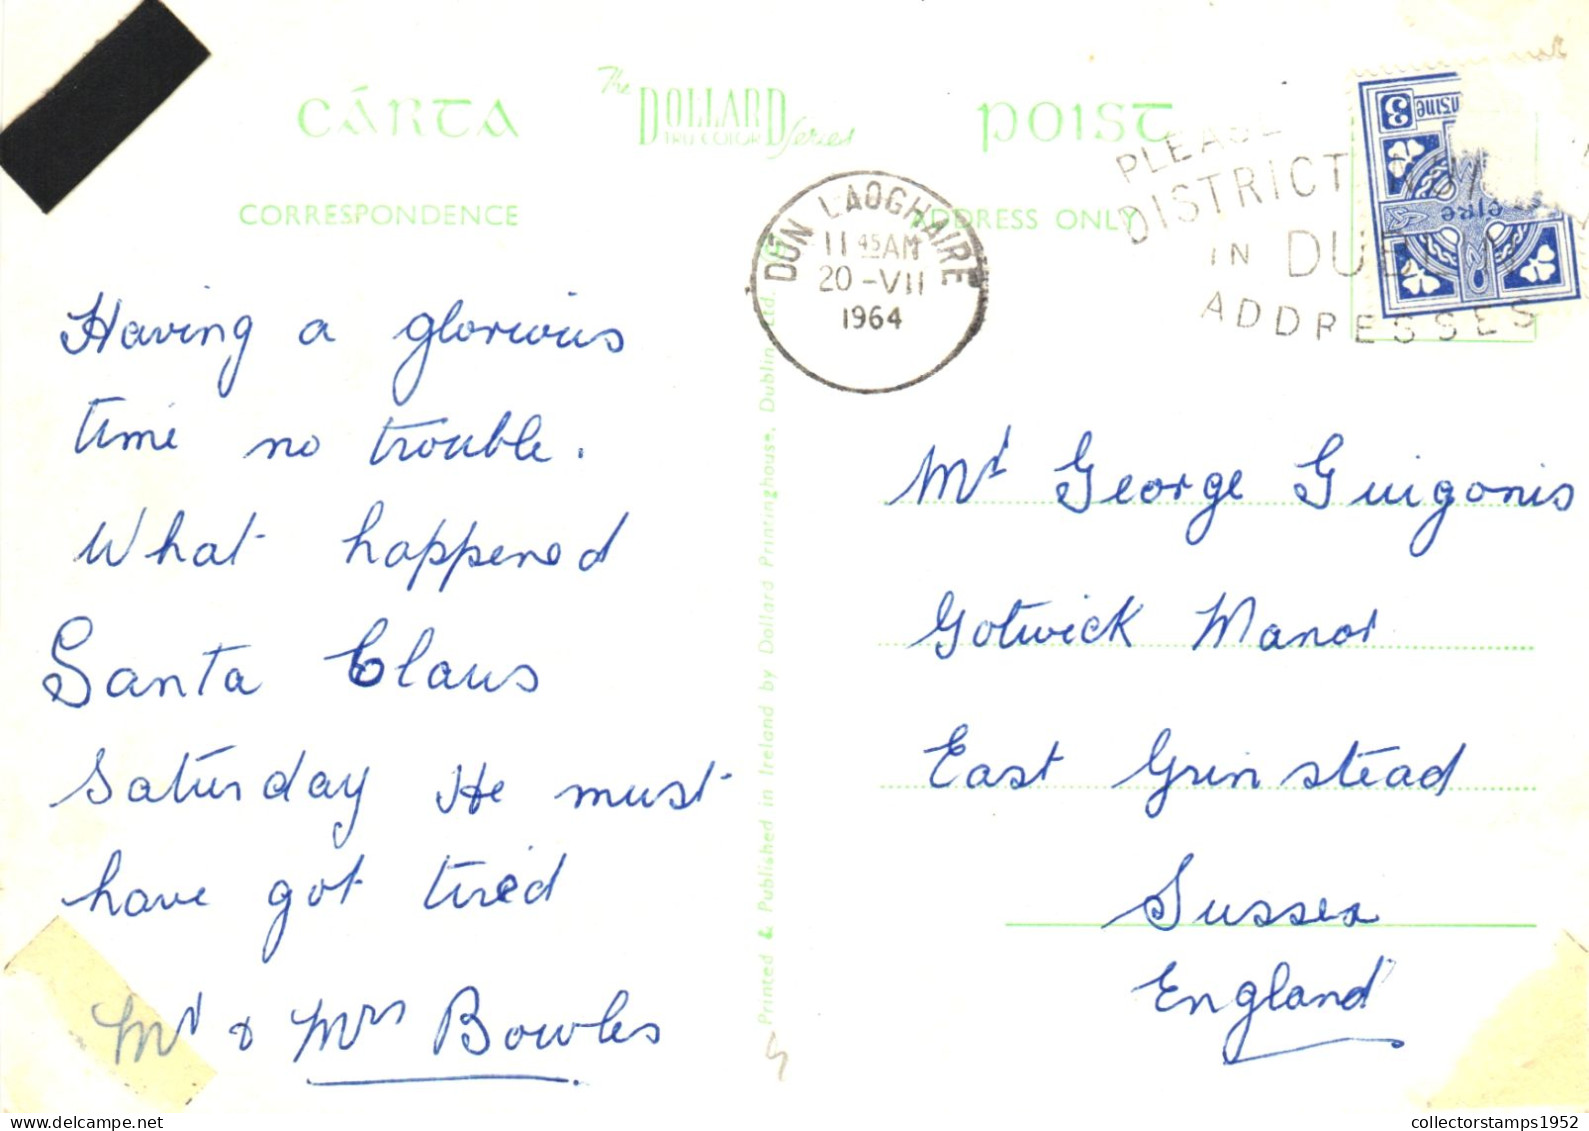 CÁRTA
The DOLLARD TRU-COLOR Series
POIST
CORRESPONDENCE
ADDRESS ONLY
DÚN LAOGHAIRE
11 45 AM
20 -VII
1964
PLEASE
DISTRICT
IN DUBLIN
ADDRESSES
3
éire
Having a glorious
time no trouble.
What happened
Santa Claus
Saturday He must
have got tired
Mr & Mrs Bowles
Printed & Published in Ireland by Dollard Printinghouse, Dublin Ltd.
Mr George Guigonis
Gotwick Manor
East Grinstead
Sussex
England
collectorstamps1952